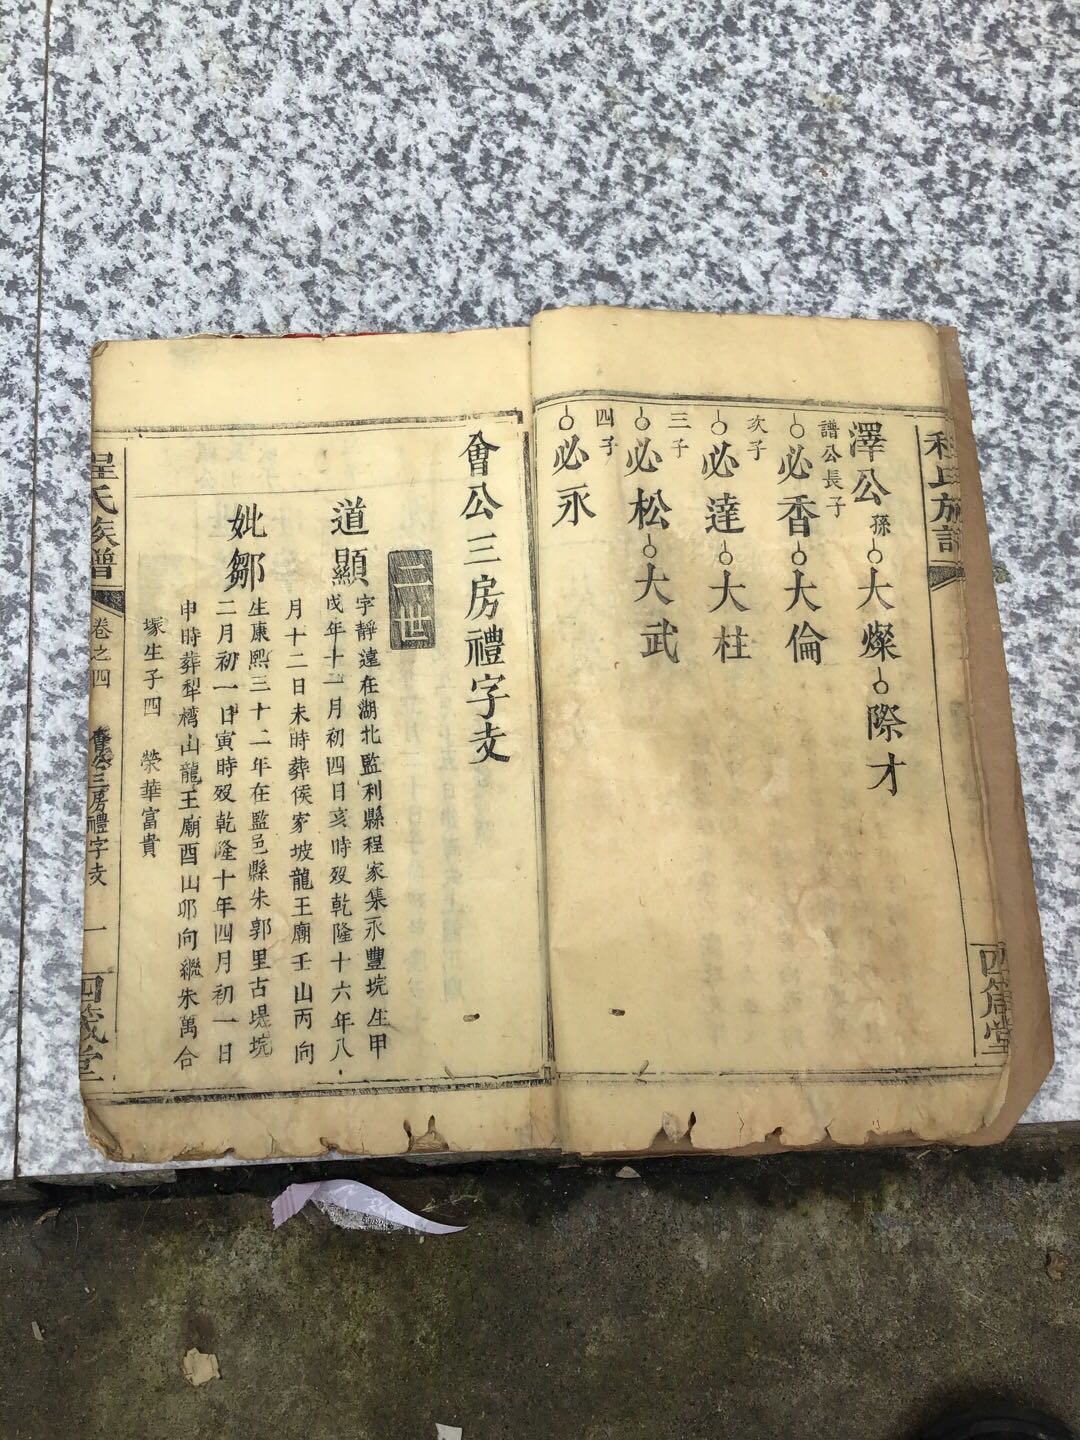 程氏族譜
四箴堂
澤公孫大燦際才
譜公長子
必香大倫
次子
必達大柱
三子
必松大武
四子
必永
會公三房禮字支
二世
道顯
字靜遠在湖北監利縣程家集永豐垸生甲
戌年十二月初四日亥時歿乾隆十六年八
月十二日未時葬侯家坡龍王廟壬山丙向
妣鄒
生康熙三十二年在監邑縣朱郭里古堤垸
二月初一日寅時歿乾隆十年四月初一日
申時葬犁樗山龍王廟酉山卯向繼朱萬合
塚生子四 榮華富貴
程氏族譜
卷之四
會公三房禮字支
一
四箴堂